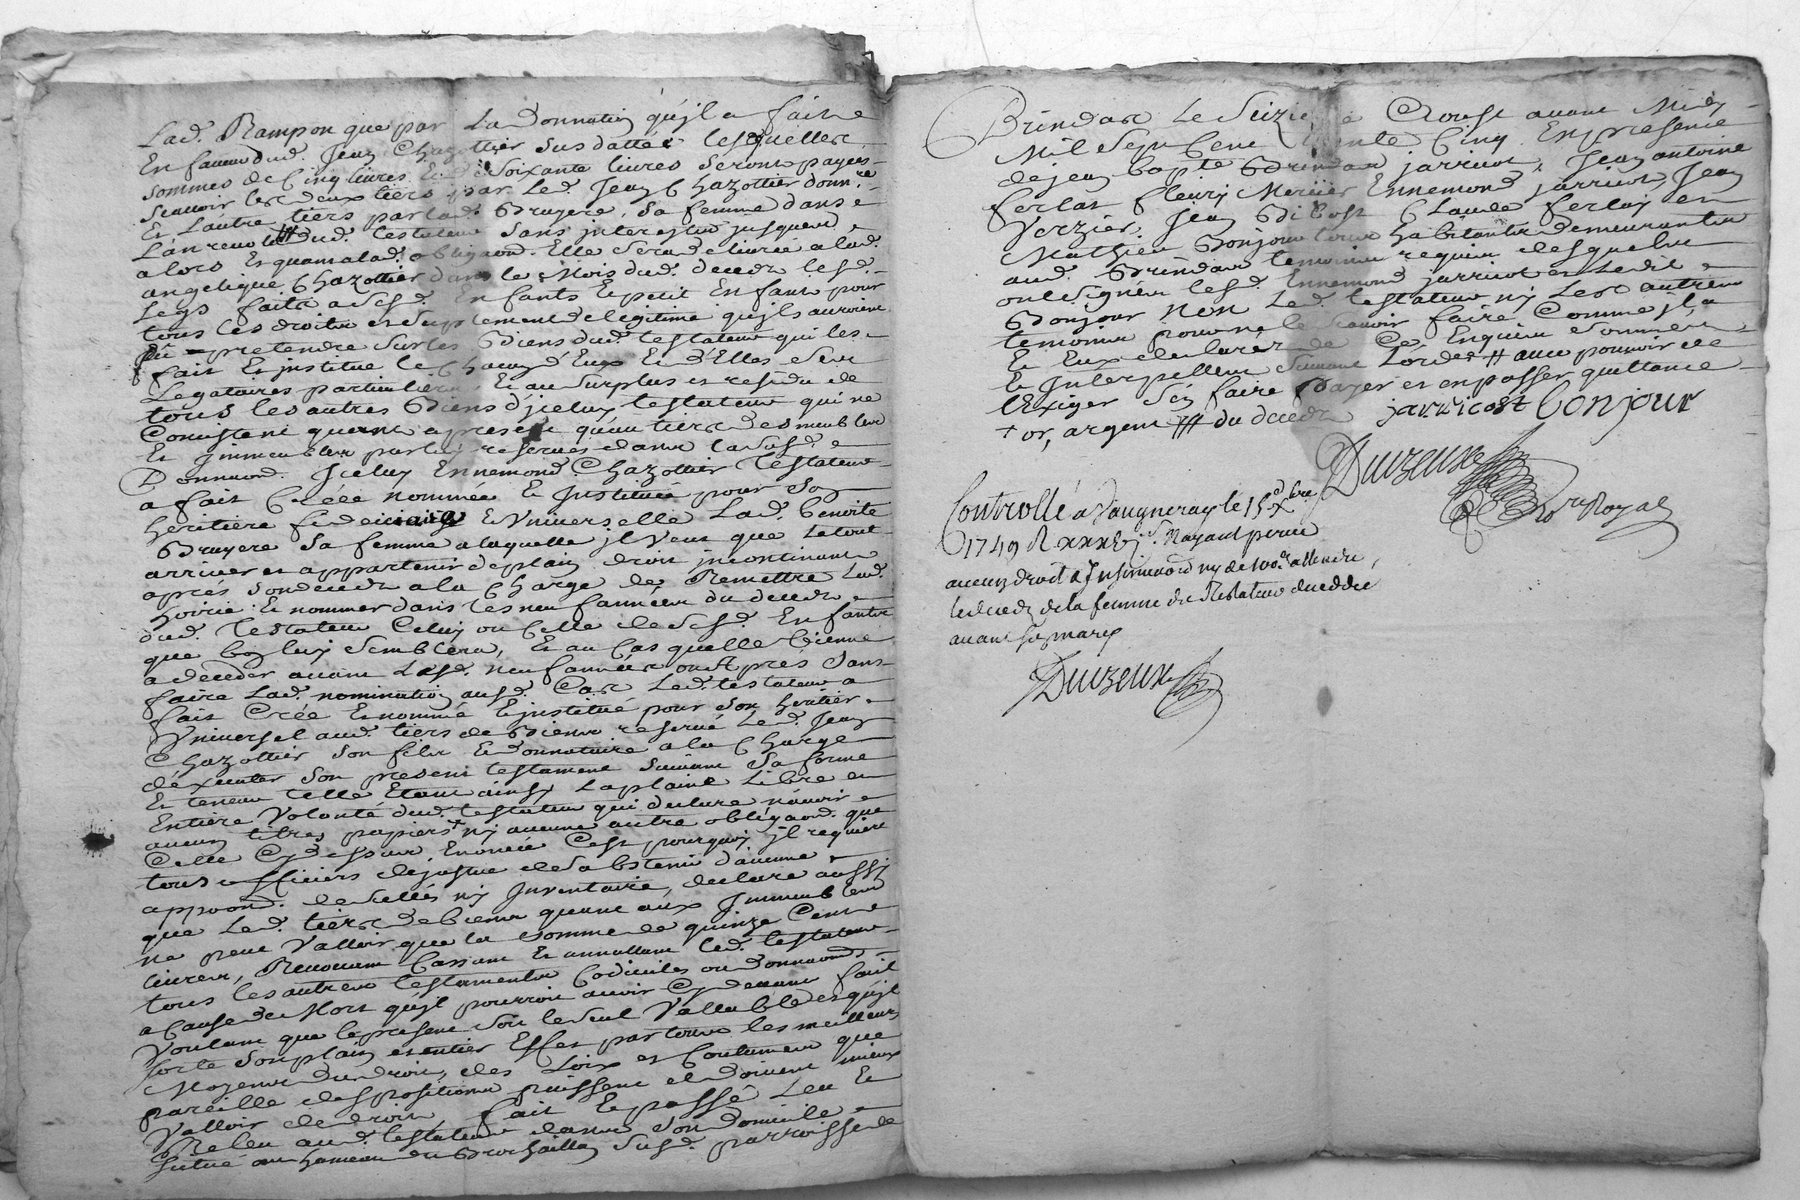 Lad. Rampon que par La donnation qu'jl a faite
En faveur dud. Jean Chazottier susdattée lesquelles
sommes de Cinq livres Et de soixante livres seront payées
scavoir les deux tiers par led. Jean Chazottier donnre
Et L'autre tiers par lad. Bruyere sa femme dans
L'an revolu dud. testateur sans interest jusques
alors Et quant a lad. obligaon. Elle sera delivrée a lad.
angelique Chazottier dans le Mois dud. deceds lesd.
Legs faits a sesd. Enfants Et petit Enfant pour
tous les droits et suplement de legitime qu'jls auroient
pu pretendre sur les Biens dud. testateur qui les
fait Et jnstitue le Chacun d'Eux Et d'Elles ses
Legataires particuliers. Et au surplus et residu de
tous les autres Biens d'jceluy testateur qui ne
Consistent quant a present qu'au tiers des meubles
Et jmmeubles par luy reservés dans la susd.
Donnaon. Jceluy Ennemond Chazottier Testateur
a fait Créée nommée Et Jnstituée pour son
heritière fideiciaire Et Vniverselle Lad. benoite
Bruyere sa femme a laquelle jl veut que le tout
arriver et appartenir de plain droit jncontinant
après son deceds a la Charge de Remettre lad.
hoirie Et nommer dans les neuf années du deceds
dud. Testateur Celuy ou Celle de sesd. Enfants
que bon luy semblera, Et au Cas quelle vienne
a deceder avant Lesd. neuf années ou Après sans
faire Lad. nomination ausd. Cas Led. testateur a
fait Crée Et nommé Et jnstitue pour son héritier
Vniversel aud. tiers de Biens reservé Led. Jean
Chazottier son fils Et donnataire a la Charge
d'éxécuter son present testament suivant sa forme
Et teneur telle Etant ainsy La plaine Libre et
Entière Volonté dud. testateur qui declare n'avoir
aucun titres papiers + ny aucune autre obligaon. que
Celle Cy dessus Enoncée C'est pourquoy jl requiert
tous officiers de justice de s'abstenir d'aucune
appoon. de scellés ny Jnventaire, declare aussy
que Led. tiers de biens quant aux Jmmeubles
ne peut Valloir que la somme de quinze Cent
livres, Revocant Cassant Et annullant led. testateur
tous les autres testaments Codiciles ou donnaons.
a Cause de Mort qu'jl pourroit avoir Cy devant fait
Voulant que le present soit le seul Vallable et qu'jl
sorte son plain et entier Effet par tous les meilleurs
Moyens du droit, des Loix et Coutumes que
pareille disposition puissent et doivent mieux
Valloir de droit, fait Et passé Leu Et
Releu aud. testateur dans son domicile
situé au hameau du Brochaillon susd. parroisse de
Brindas Le seizie Aoust avant Midy
Mil Sept Cent trente Cinq En presence
de jean bapte Brindas jarricot, Jean antoine
ferlat fleury Mercier Ennemond jarricot, Jean
Verzier, Jean Claude ferlay et
Mathieu Bonjour tous habitants demeurants
aud. Brindas temoins requis lesquels
ont signé lesd. Ennemond jarricot et ledit
Bonjour Non Led. testateur ny Les autres
temoins pour ne le scavoir faire Comme jl a
Et Eux declaréz de Ce Enquis sommés
Et Jnterpellés suivant L'ordce # avec pouvoir de
l'Exiger s'en faire Payer et en passer quittance
+ or, argent ### du deceds jarricost bonjour
Duizeux
No.re Royal
Controllé a Vaugneray le 15e Xbre
1749 R xxxvj s. Nayant perceu
aucuns droit d'Jnsinuaon ny de 100e attendu
le deceds de la femme du Testateur decedée
avant son mary
Duizeux